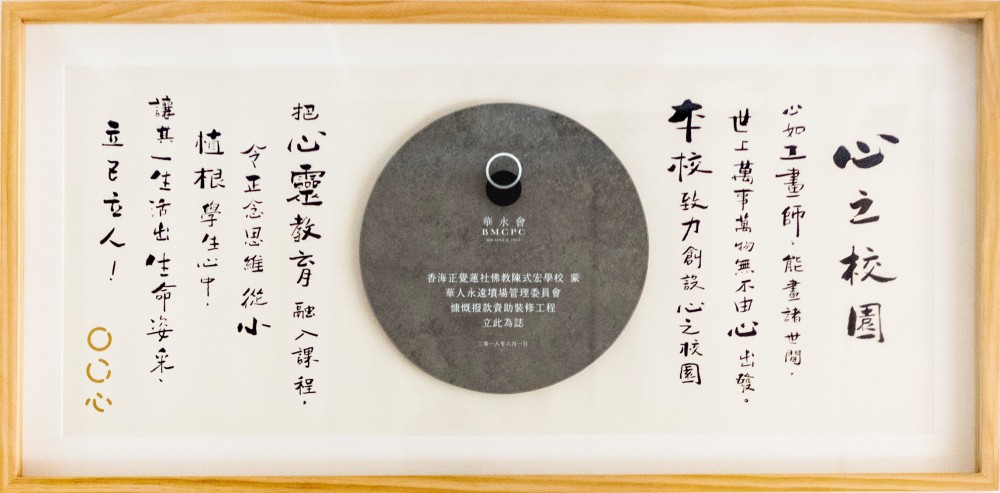 心之校園
心如工畫師，能畫諸世間，
世上萬事萬物無不由心出發。
本校致力創設心之校園
華永會
BMCPC
香海正覺蓮社佛教陳式宏學校 蒙
華人永遠墳場管理委員會
慷慨撥款資助裝修工程
立此為誌
二零一八年六月一日
把心靈教育融入課程，
令正念思維從小
植根學生心中！
讓其一生活出生命姿采、
立己立人！
〇〇心